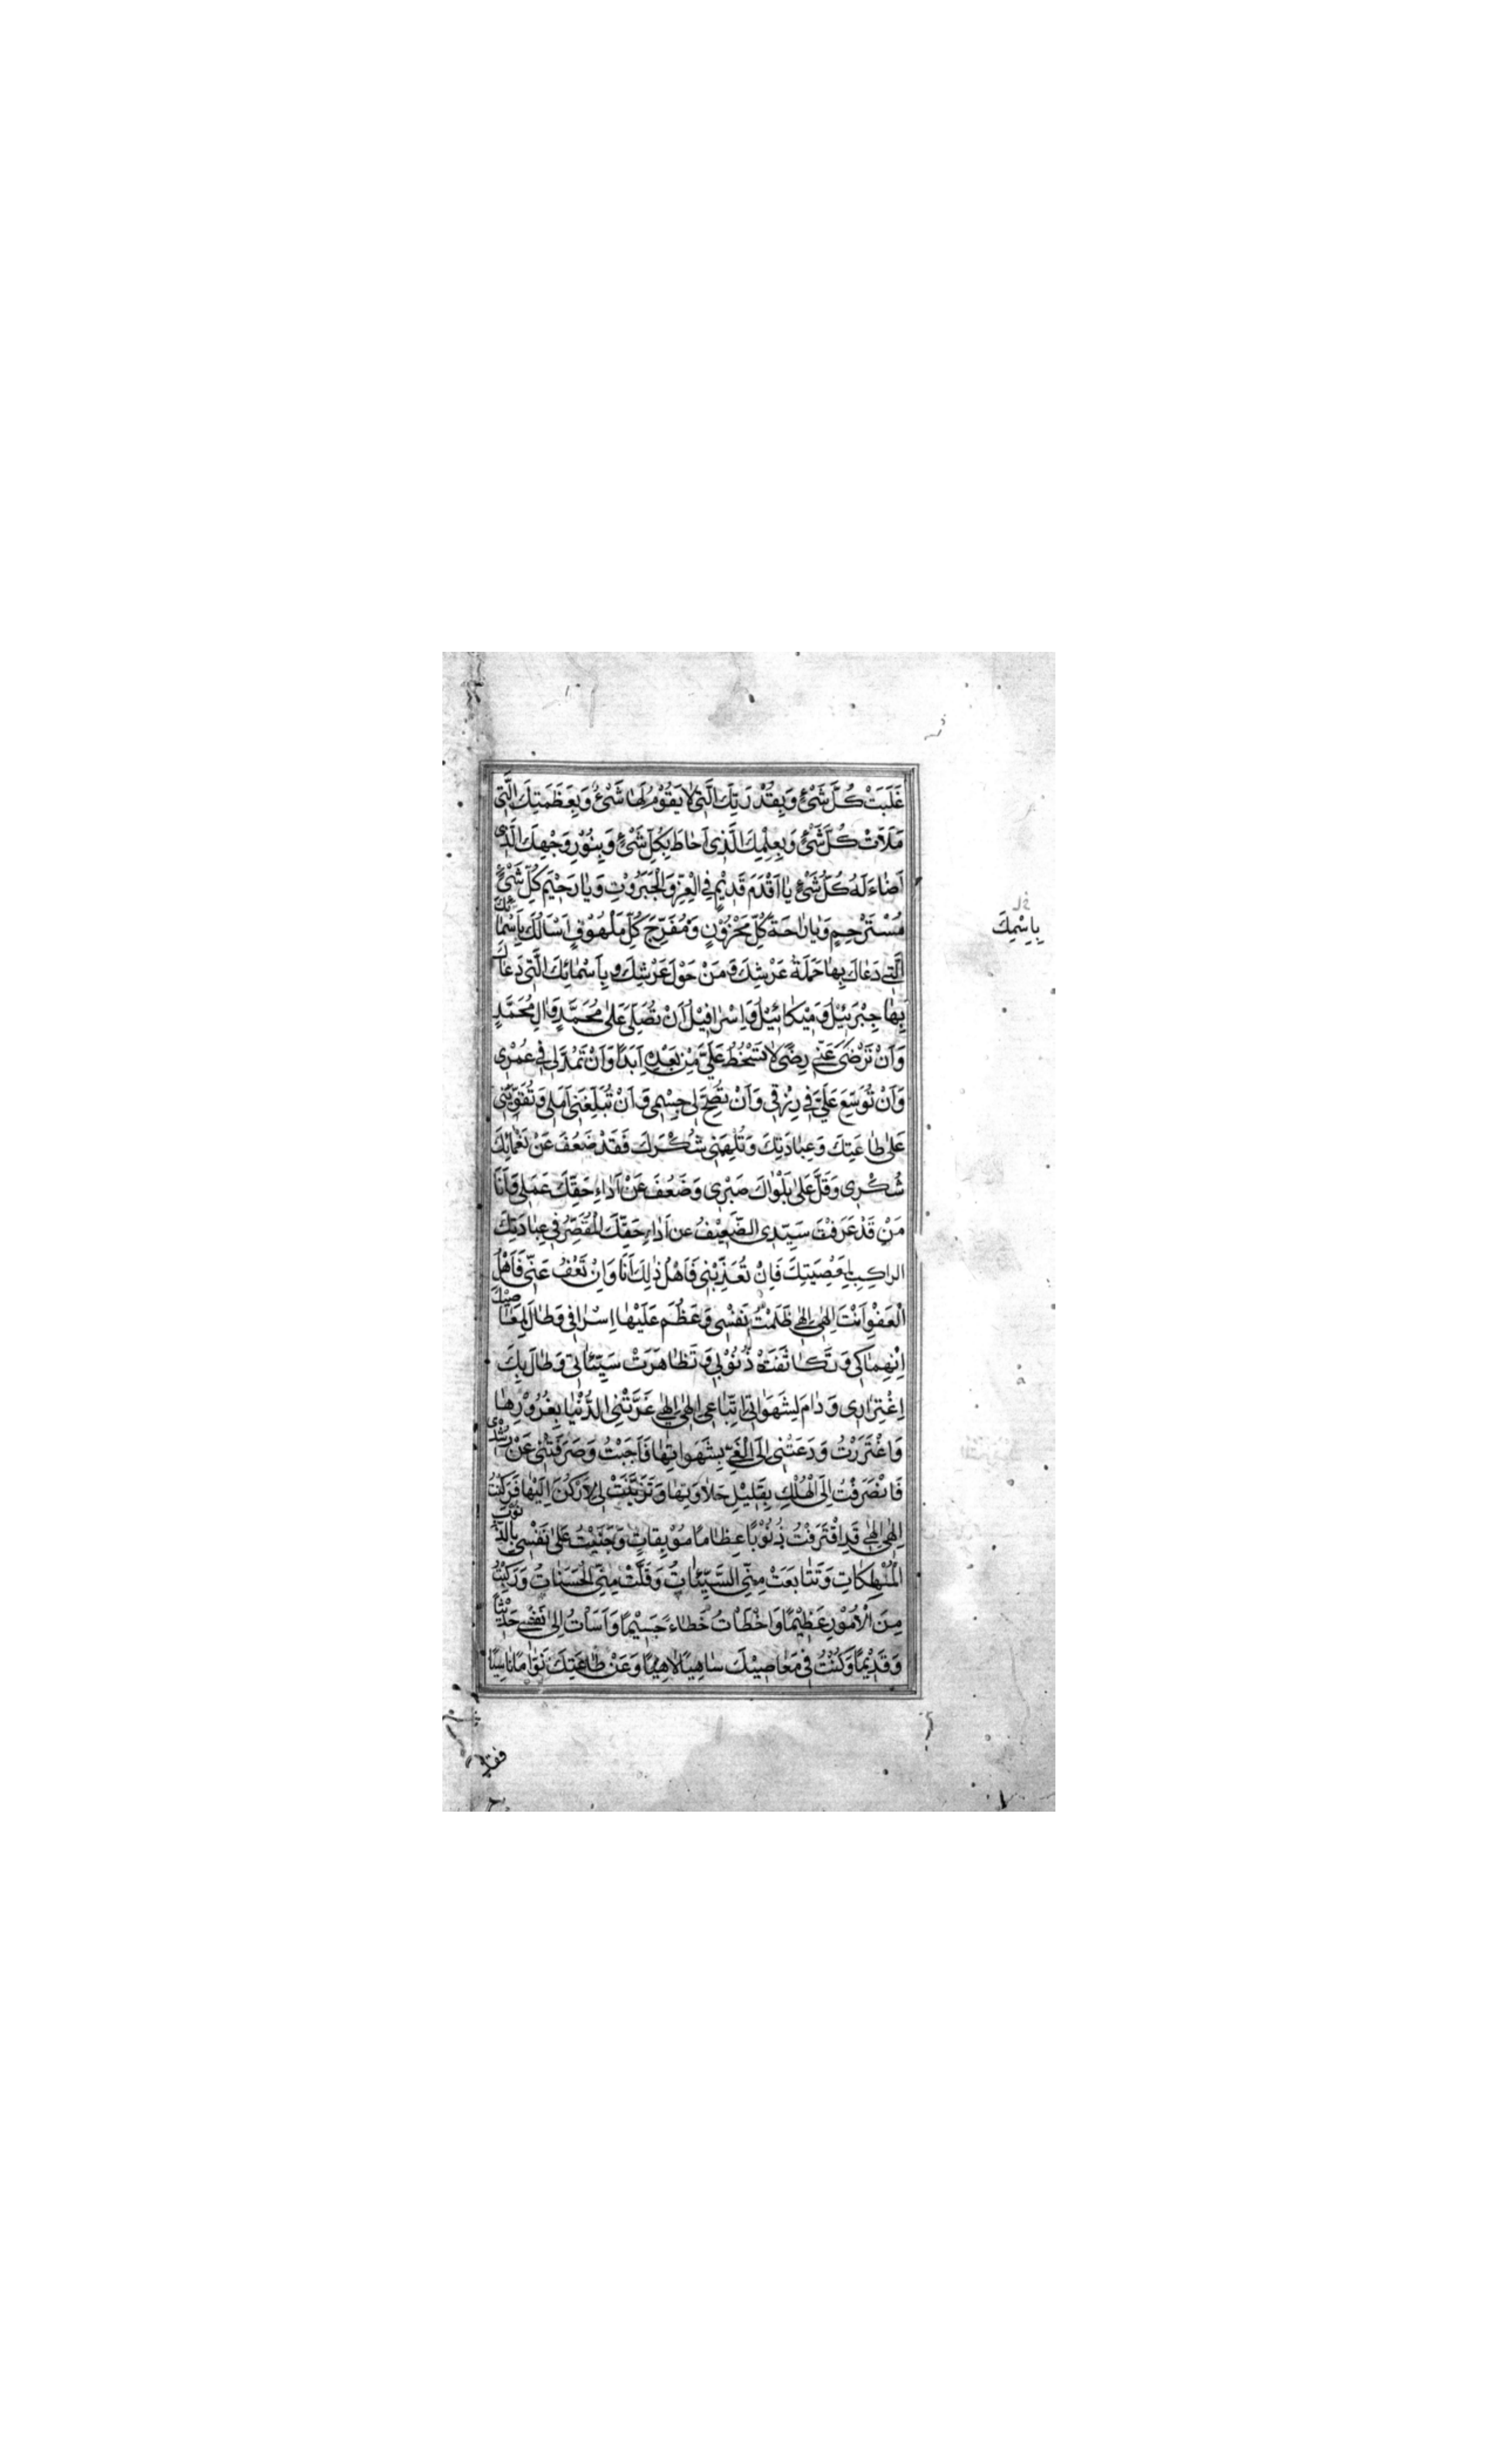 غَلَبَتْ كُلَّ شَيْءٍ وَبِقُدْرَتِكَ الَّتِي لَا يَقُوْمُ لَهَا شَيْءٌ وَبِعَظَمَتِكَ الَّتِي
مَلَاَتْ كُلَّ شَيْءٍ وَبِعِلْمِكَ الَّذِي اَحَاطَ بِكُلِّ شَيْءٍ وَبِنُوْرِ وَجْهِكَ الَّذِي
اَضَاءَ لَهُ كُلُّ شَيْءٍ يَا اَقْدَمَ قَدِيْمٍ فِي الْعِزِّ وَالْجَبَرُوْتِ وَيَا رَحِيْمَ كُلِّ شَيْءٍ
مُسْتَرْحِمٍ وَيَا رَاحَةَ كُلِّ مَحْزُوْنٍ وَمُفَرِّجَ كُلِّ مَلْهُوْفٍ اَسْاَلُكَ بِاَسْمَائِكَ
بِاسْمِكَ
الَّتِي دَعَاكَ بِهَا حَمَلَةُ عَرْشِكَ وَمَنْ حَوْلَ عَرْشِكَ وَبِاَسْمَائِكَ الَّتِي دَعَاكَ
بِهَا جِبْرَئِيْلُ وَمِيْكَائِيْلُ وَاِسْرَافِيْلُ اَنْ تُصَلِّيَ عَلَى مُحَمَّدٍ وَآلِ مُحَمَّدٍ
وَاَنْ تَرْضَى عَنِّي رِضًى لَا تَسْخَطُ عَلَيَّ مِنْ بَعْدِهِ اَبَدًا وَاَنْ تَمُدَّ لِي فِي عُمْرِي
وَاَنْ تُوَسِّعَ عَلَيَّ فِي رِزْقِي وَاَنْ تُصِحَّ لِي جِسْمِي وَاَنْ تُبَلِّغَنِي اَمَلِي وَتُقَوِّيَنِي
عَلَى طَاعَتِكَ وَعِبَادَتِكَ وَتُلْهِمَنِي شُكْرَكَ فَقَدْ ضَعُفَ عَنْ نَعْمَائِكَ
شُكْرِي وَقَلَّ عَلَى بَلْوَاكَ صَبْرِي وَضَعُفَ عَنْ اَدَاءِ حَقِّكَ عَمَلِي وَاَنَا
مَنْ قَدْ عَرَفْتَ سَيِّدِي الضَّعِيْفُ عَنْ اَدَاءِ حَقِّكَ الْمُقَصِّرُ فِي عِبَادَتِكَ
الراكِبُ لِمَعْصِيَتِكَ فَاِنْ تُعَذِّبْنِي فَاَهْلُ ذٰلِكَ اَنَا وَاِنْ تَعْفُ عَنِّي فَاَهْلُ
الْعَفْوِ اَنْتَ اِلٰهِي اِلٰهِي ظَلَمْتُ نَفْسِي وَعَظُمَ عَلَيْهَا اِسْرَافِي وَطَالَ لِمَعَاصِيْكَ
اِنْهِمَاكِي وَتَكَاثَفَتْ ذُنُوْبِي وَتَظَاهَرَتْ سَيِّئَاتِي وَطَالَ بِكَ
اِغْتِرَارِي وَدَامَ لِشَهَوَاتِي اتِّبَاعِي اِلٰهِي اِلٰهِي غَرَّتْنِي الدُّنْيَا بِغُرُوْرِهَا
وَاغْتَرَرْتُ وَدَعَتْنِي اِلَى الْغَيِّ بِشَهَوَاتِهَا فَاَجَبْتُ وَصَرَفَتْنِي عَنْ رُشْدِي
فَانْصَرَفْتُ اِلَى الْهُلْكِ بِقَلِيْلِ حَلَاوَتِهَا وَتَزَيَّنَتْ لِي لِاَرْكُنَ اِلَيْهَا فَرَكَنْتُ
اِلٰهِي اِلٰهِي قَدِ اقْتَرَفْتُ ذُنُوْبًا عِظَامًا مُوْبِقَاتٍ وَجَنَيْتُ عَلَى نَفْسِي بِالذُّنُوْبِ
الْمُهْلِكَاتِ وَتَتَابَعَتْ مِنِّي السَّيِّئَاتُ وَقَلَّتْ مِنِّي الْحَسَنَاتُ وَرَكِبْتُ
مِنَ الْاُمُوْرِ عَظِيْمًا وَاَخْطَاْتُ خَطَاءً جَسِيْمًا وَاَسَاْتُ اِلَى نَفْسِي حَدِيْثًا
وَقَدِيْمًا وَكُنْتُ فِي مَعَاصِيْكَ سَاهِيًا لَاهِيًا وَعَنْ طَاعَتِكَ نَوَّامًا نَاسِيًا